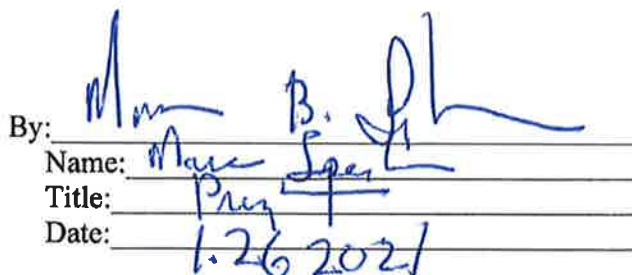 By: B.
Name: Marc
Title: Prez
Date: 1.26 2021